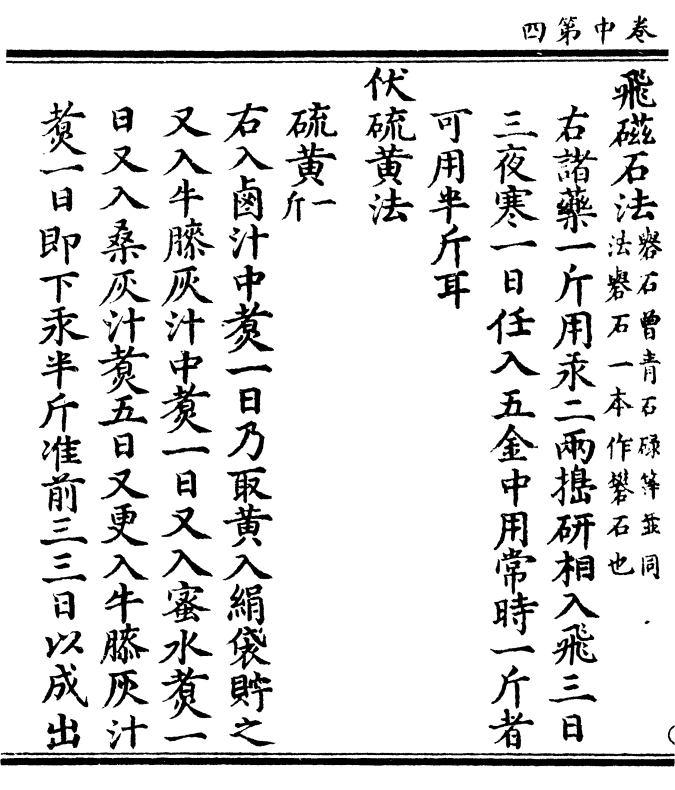 卷中第四
飛磁石法礜石曾青石碌等並同法礜石一本作礬石也
右諸藥一斤用汞二兩擣研相入飛三日
三夜寒一日任入五金中用常時一斤者
可用半斤耳
伏硫黃法
硫黃一斤
右入鹵汁中煑一日乃取黃入絹袋貯之
又入牛膝灰汁中煑一日又入蜜水煑一
日又入桑灰汁煑五日又更入牛膝灰汁
煑一日即下汞半斤准前三三日以成出